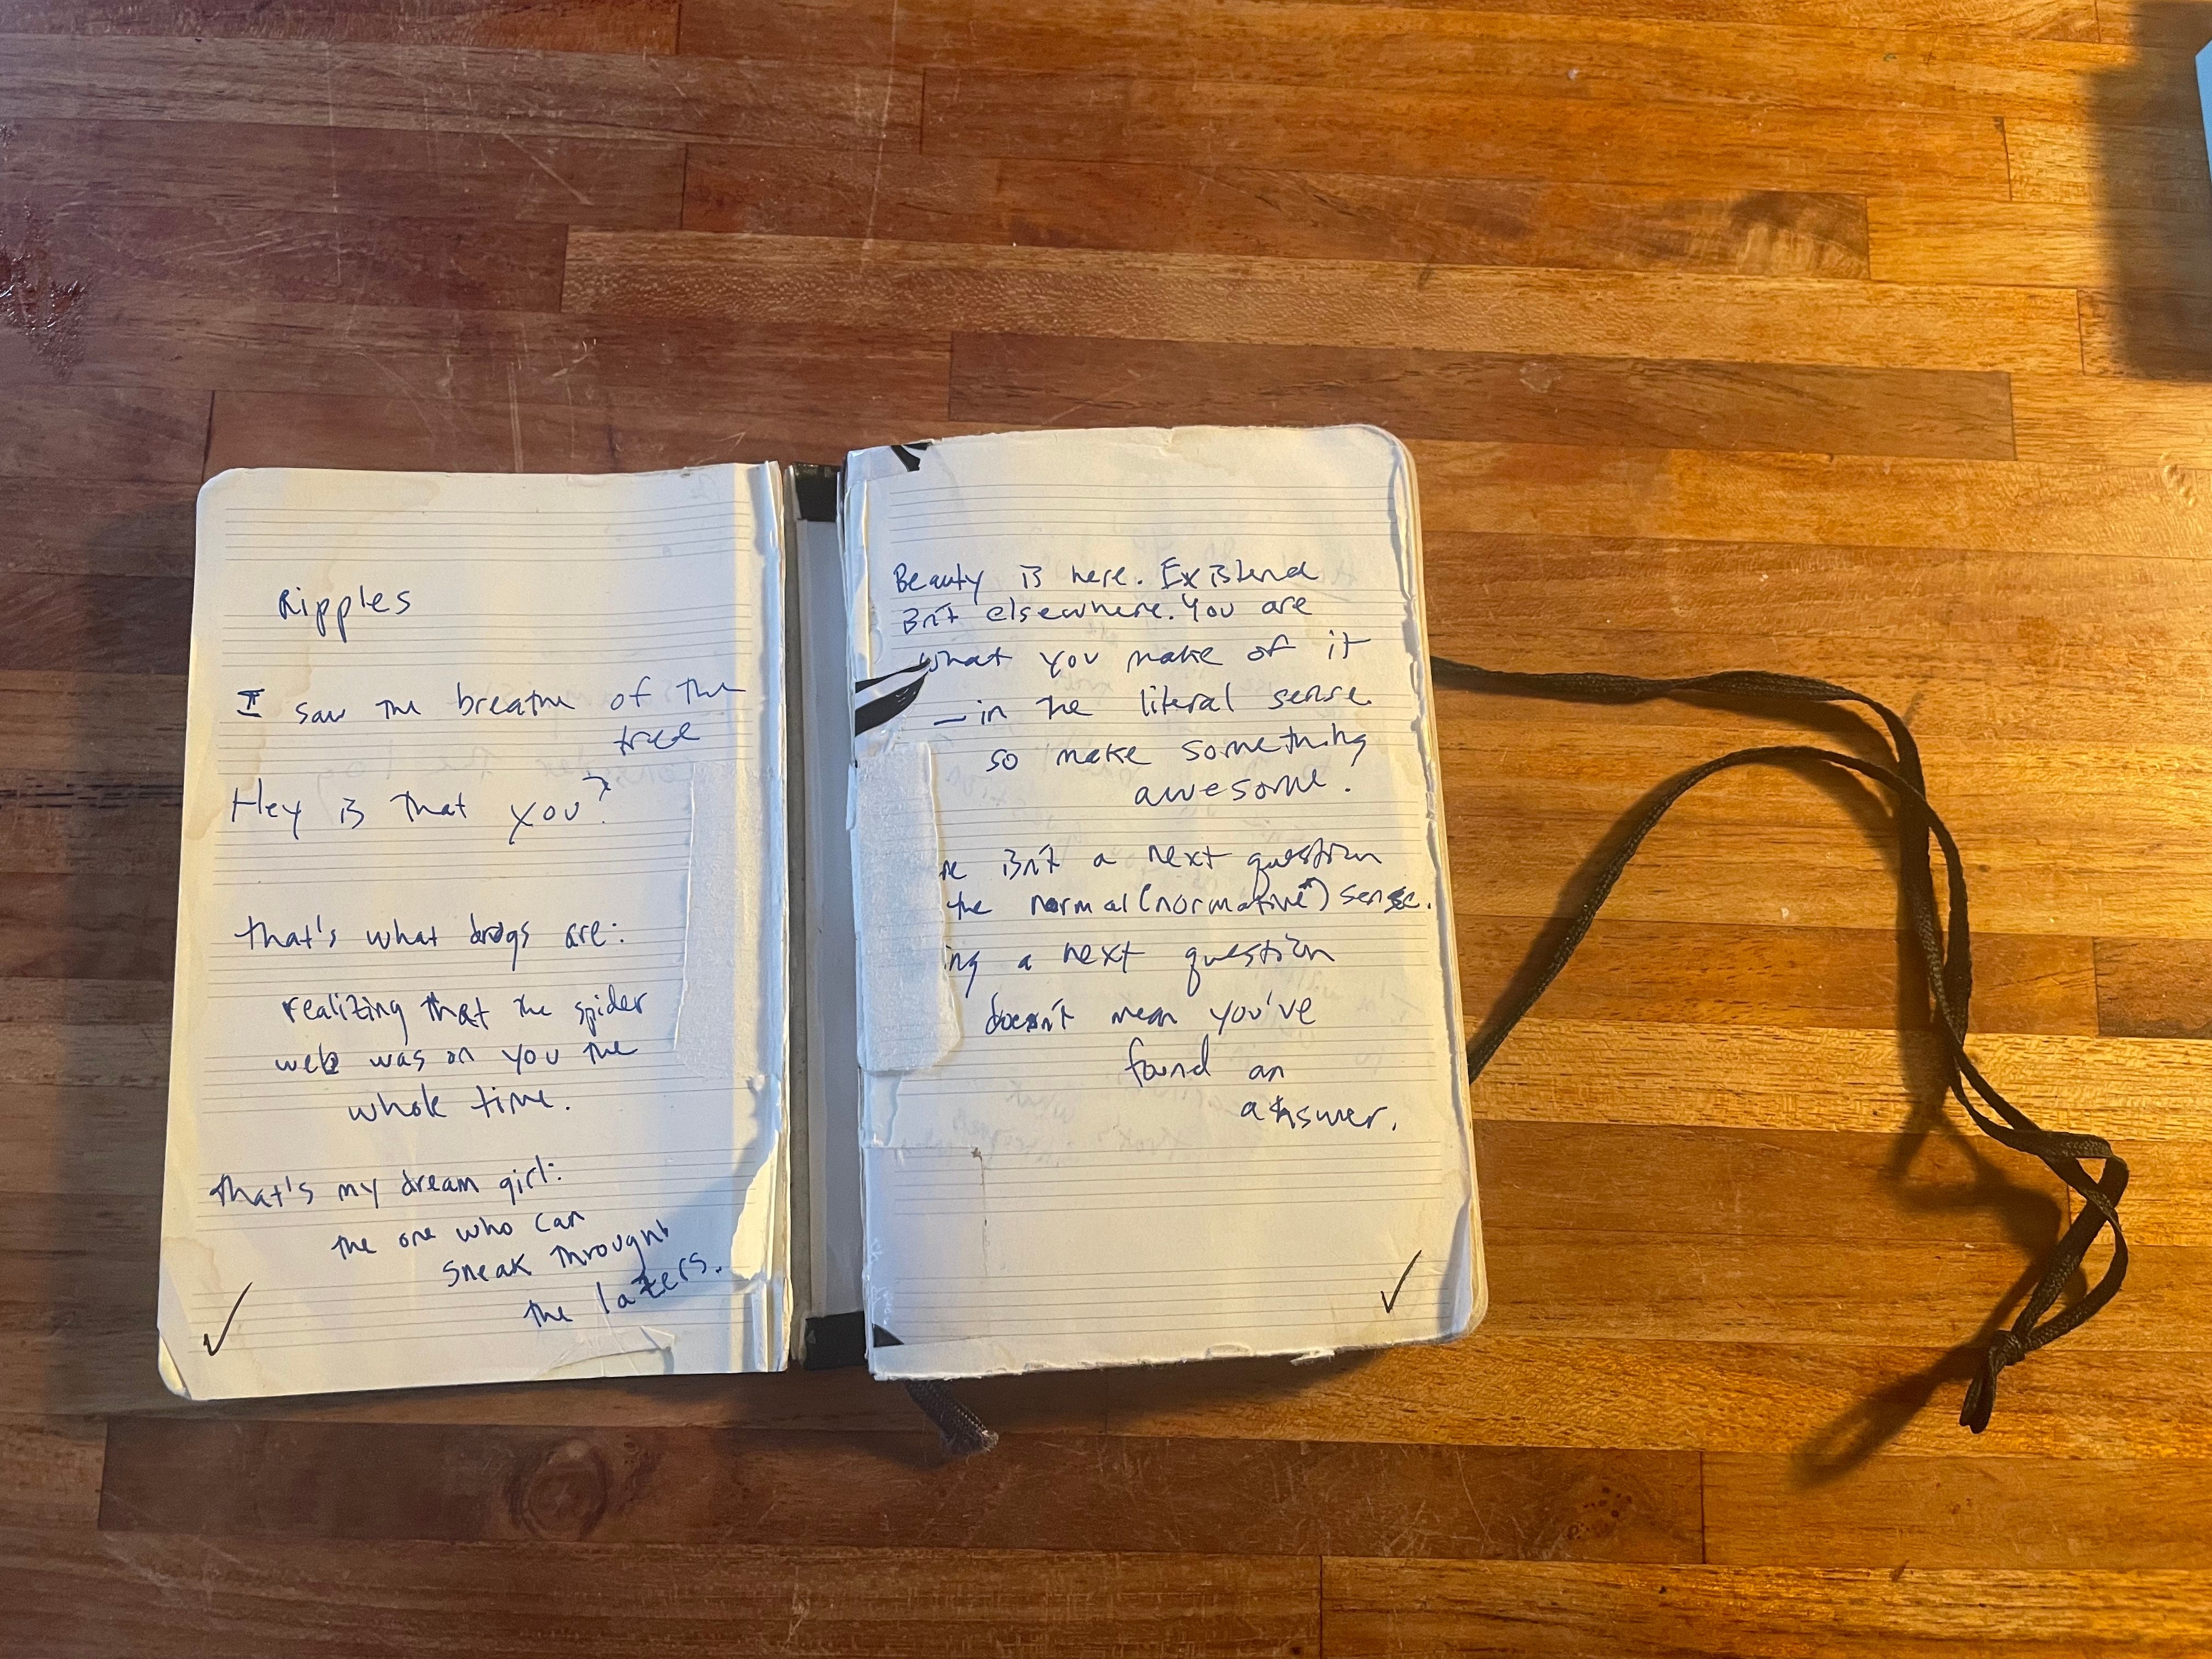 Ripples
I saw the breathe of the
tree
Hey is that you?
that's what drugs are:
realizing that the spider
web was on you the
whole time.
That's my dream girl:
the one who can
sneak throught
the lazers.
Beauty is here. Existend
isn't elsewhere. You are
what you make of it
– in the literal sense.
so make something
awesome.
re isn't a next question
the normal (normative*) sense.
ing a next question
doesn't mean you've
found an
answer.